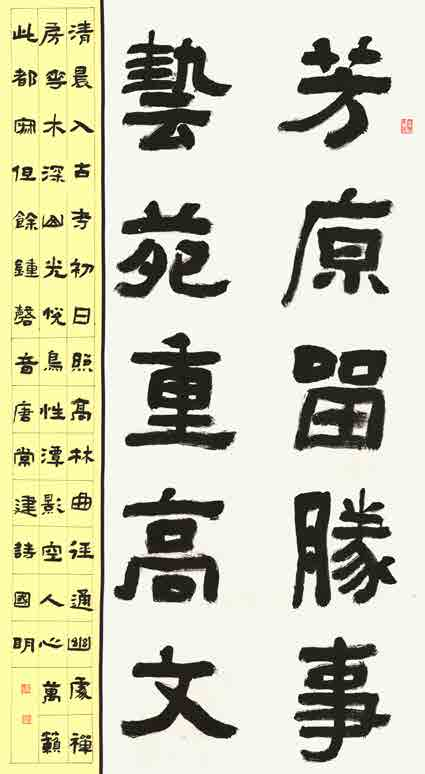 芳原留勝事
藝苑重高文
清晨入古寺初日照高林曲徑通幽處禪
房花木深山光悅鳥性潭影空人心萬籟
此都寂但餘鍾磬音唐常建詩國明